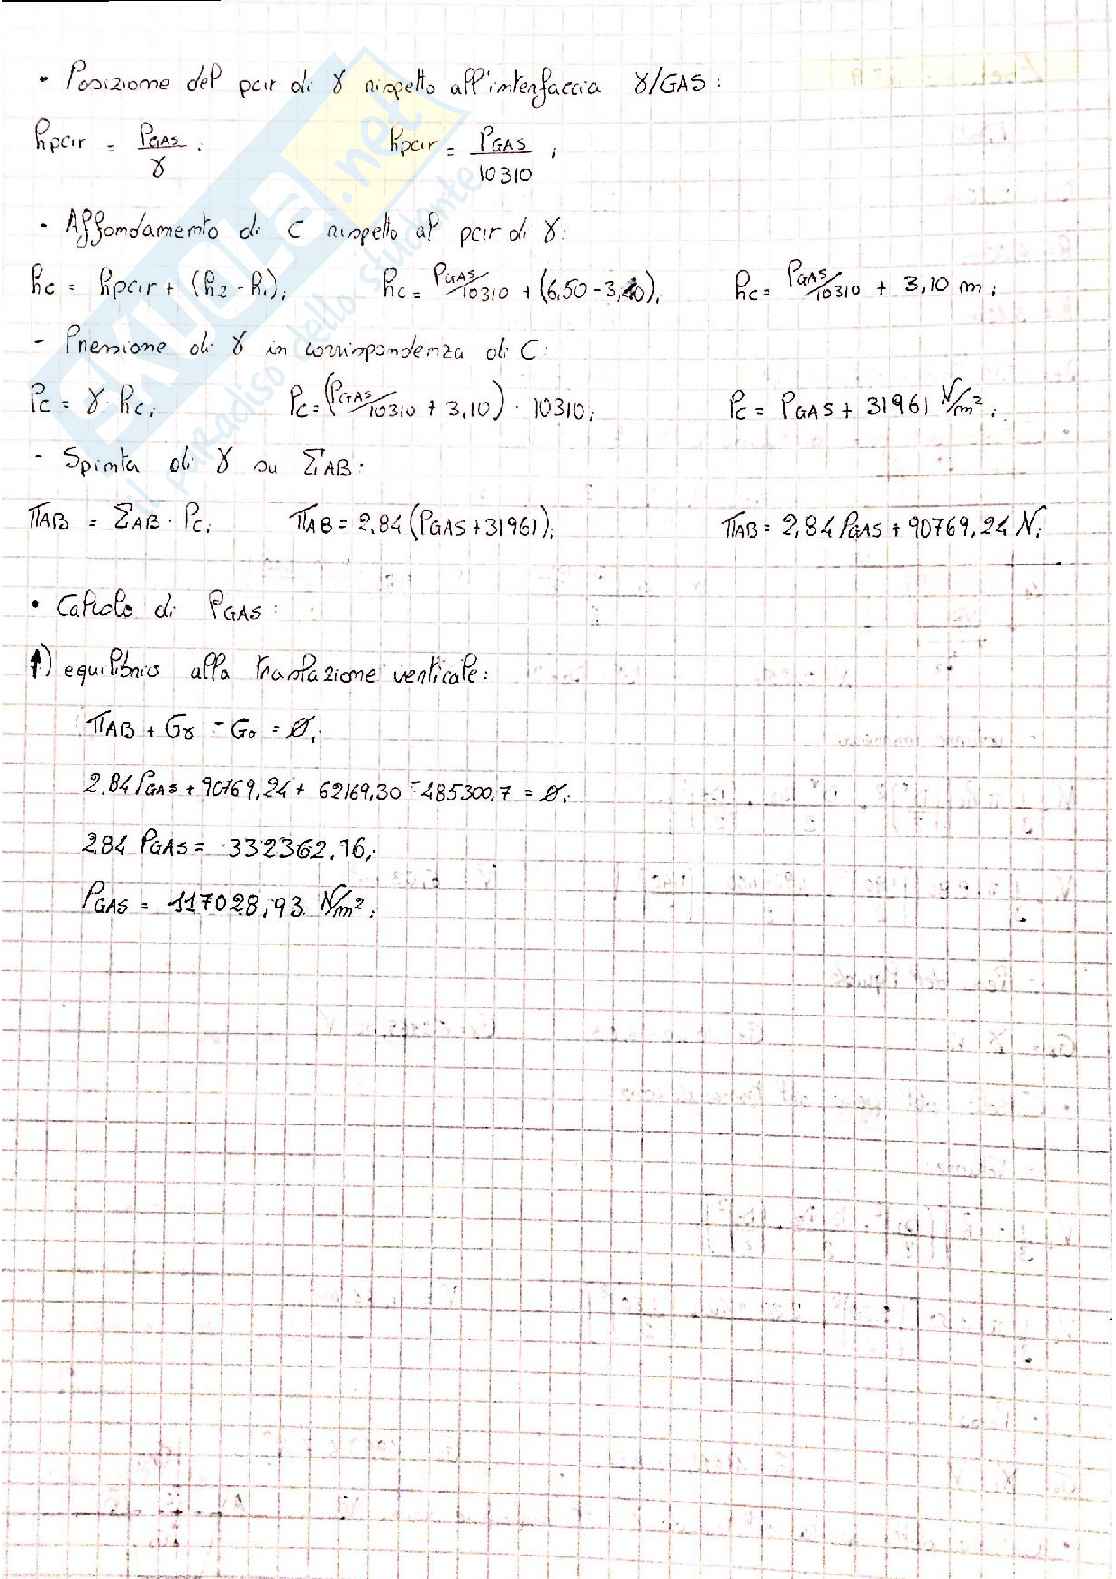 • Posizione del pcir di γ rispetto all'interfaccia γ/GAS:
hpcir = PGAS/γ ; hpcir = PGAS/10310 ;
- Affondamento di C rispetto al pcir di γ:
hc = hpcir + (h2 - h1); hc = PGAS/10310 + (6,50 - 3,40); hc = PGAS/10310 + 3,10 m;
- Pressione di γ in corrispondenza di C:
Pc = γ · hc; Pc = (PGAS/10310 + 3,10) · 10310; Pc = PGAS + 31961 N/m²;
- Spinta di γ su ΣAB:
ΠAB = ΣAB · Pc; ΠAB = 2,84 (PGAS + 31961); ΠAB = 2,84 PGAS + 90769,24 N;
• Calcolo di PGAS:
↑) equilibrio alla traslazione verticale:
ΠAB + Gγ - G0 = Ø;
2,84 PGAS + 90769,24 + 62169,30 - 485300,7 = Ø;
284 PGAS = 332362,16;
PGAS = 117028,93 N/m²;
SKUOLA.net
il paradiso dello studente